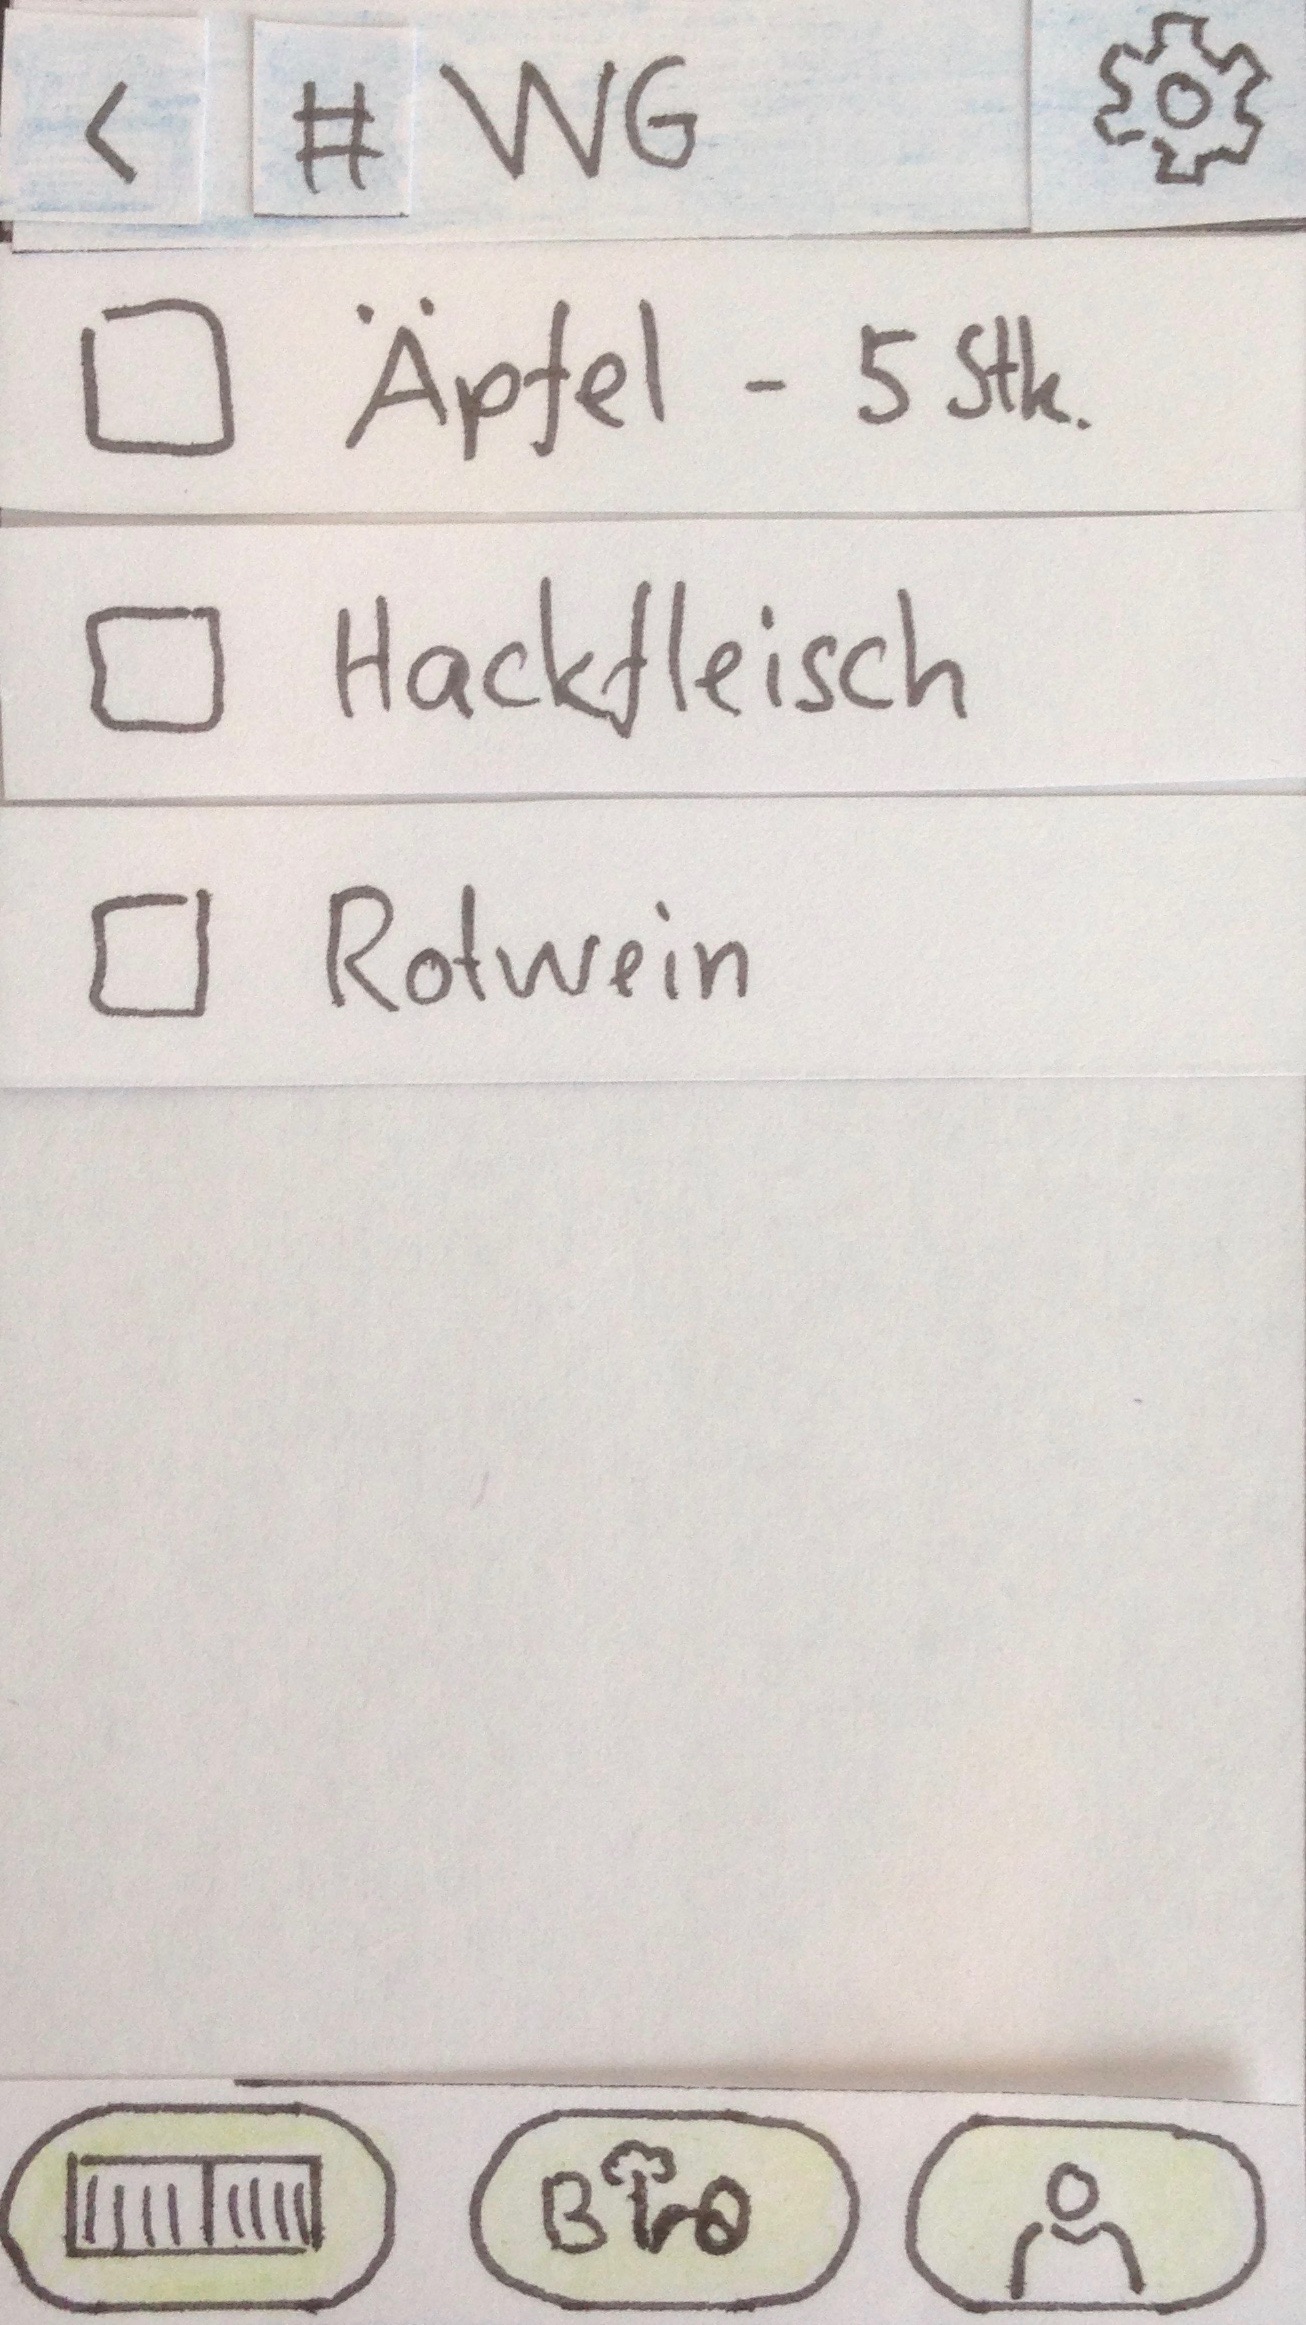 < # WG
Äpfel - 5 Stk.
Hackfleisch
Rotwein
Bio